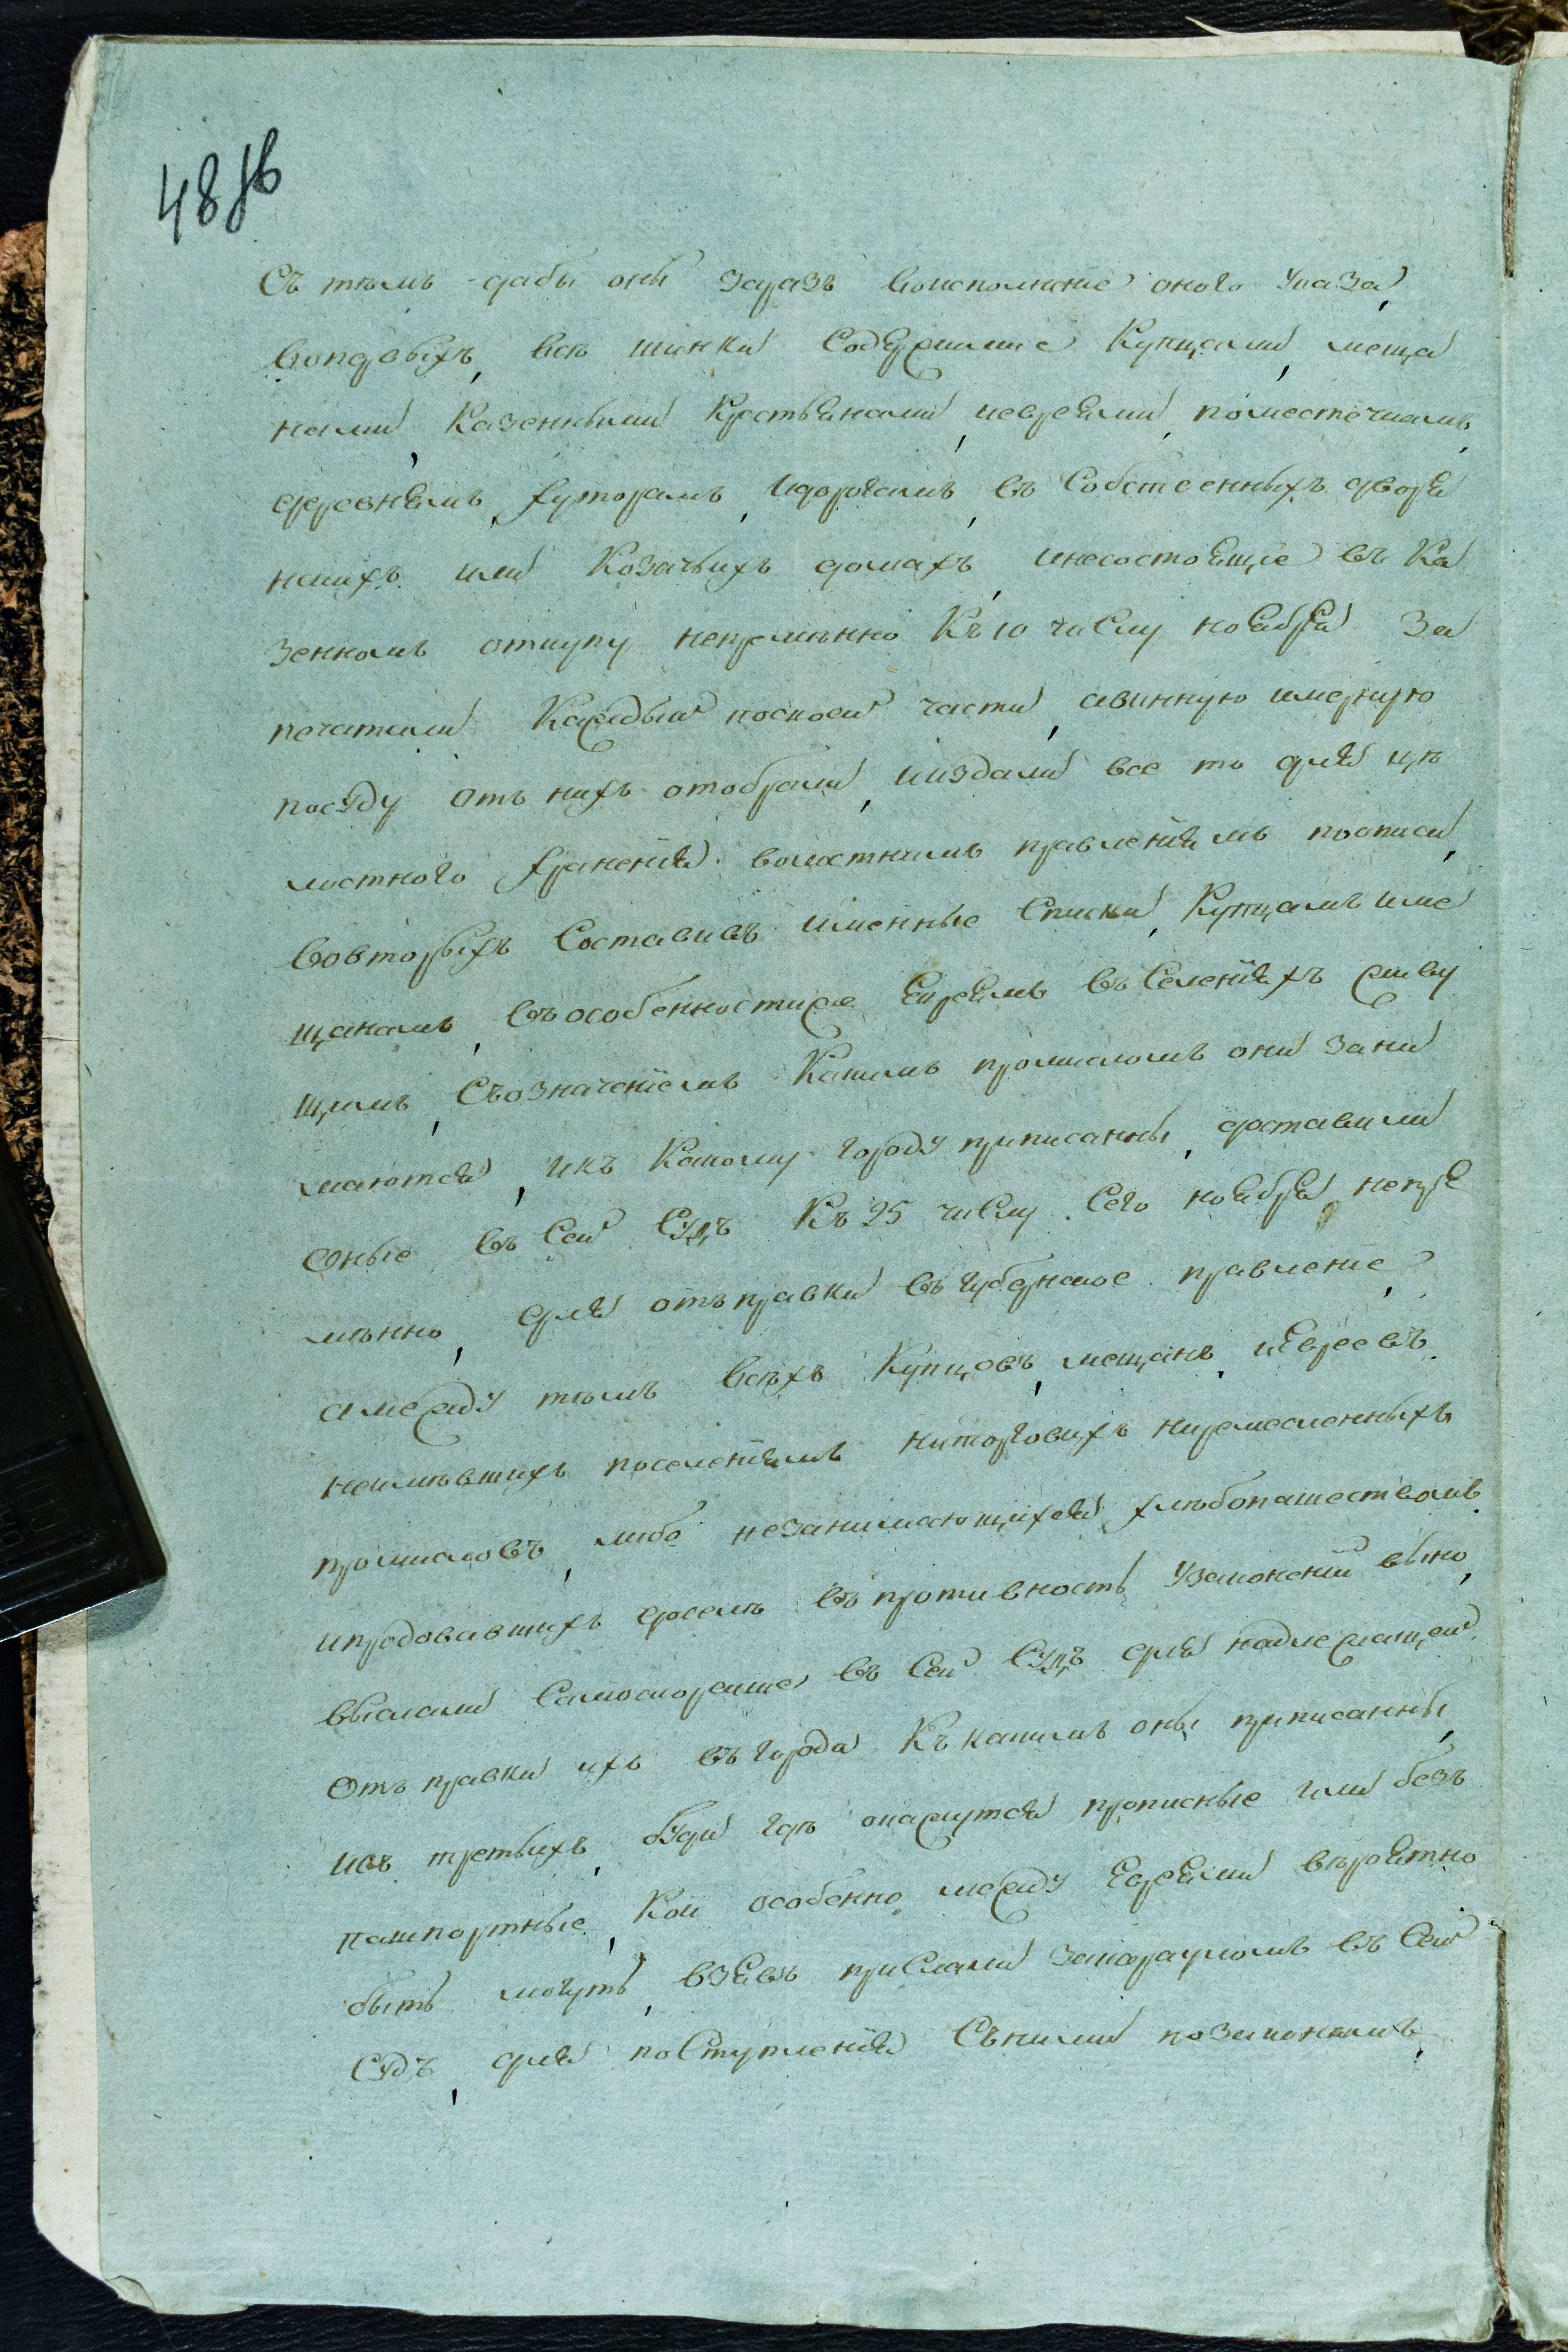 48 зв
Съ тѣмъ дабы оны заразъ воисполнение оного указа,
вопервыхъ, всѣ шинки Содержимие Купцами, меща
нами, Казенными Крестьянами, иевреями, поместечкамъ,
деревнямъ, хуторамъ, идорогамъ, въ Собственныхъ дворя
нкихъ или Козачьихъ домахъ, инесостоящие въ Ка
зенномъ откупу непремѣнно Къ 10 числу ноября За
печатали Каждый посвоей части, авинную имерную
посуду отъ нихъ отобрали,ииздали все то для цѣ
лостного хранения волостнимъ правлениямъ пописи,
вовторыхъ Составивъ именные Списки, Купцамъ име
щанамъ, въособенностиже Евреямъ въ Селенияхъ живу
щимъ, Съозначениемъ Какимъ промисломъ они зани
маются, икъ Какому городу приписанны, доставили
оные въ Сей Судъ Къ 25 числу Сего ноября, непре
мѣнно, для отъправки въ губернское правление,
амежду тѣмъ всѣхъ Купцовъ, мещанъ, иЕвреевъ
неимѣвшихъ поселениямъ ниторговихъ ниремесленныхъ
промисловъ, либо незанимающихся хлѣбопашествомъ
ипродовавшихъ доселѣ въ противность узаконений вино,
выслали Самоскорейше въ Сей Судъ для надлежащей
Отъправки ихъ въ города Къ какимъ оны приписанны,
ивъ третьихъ, буди гдѣ окажутся прописные или безъ
пашпортные, Кои особенно между Евреями вѣроятно
быть могутъ, взявъ прислали закарауломъ въ Сей
Судъ, для поступления Съними позаконамъ,